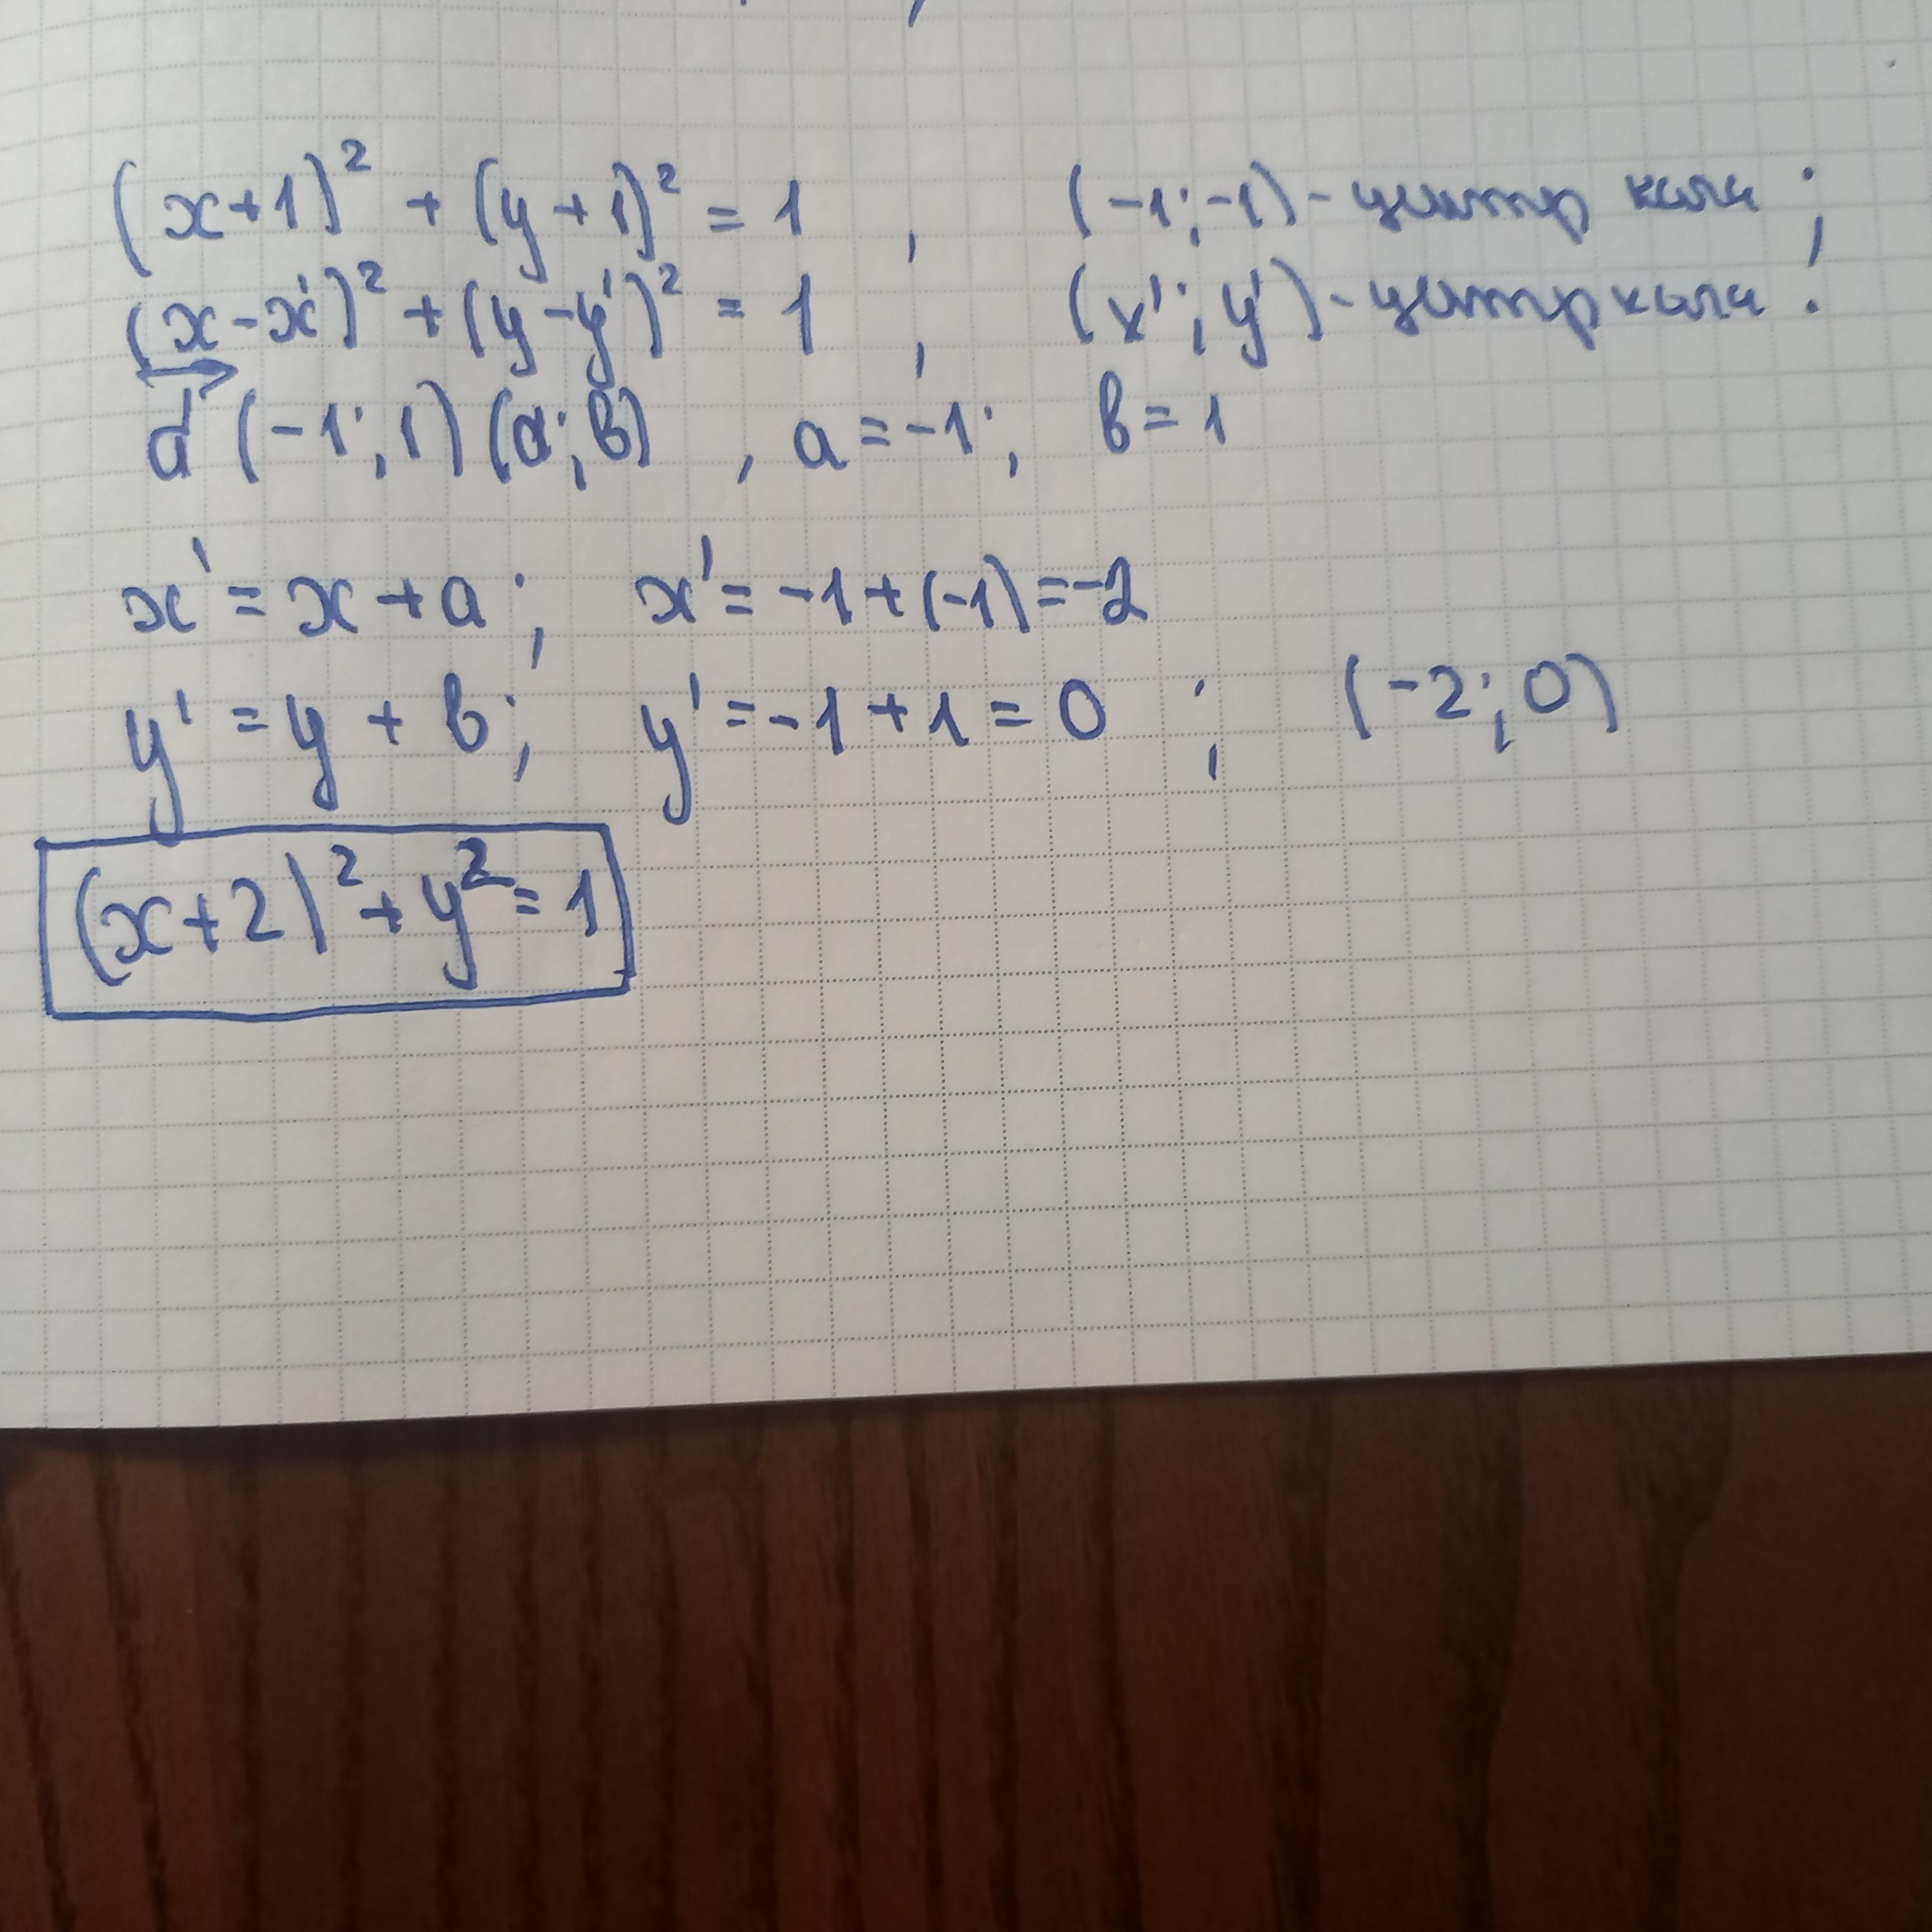 (x+1)² + (y+1)² = 1 , (-1;-1) - центр кола ;
(x-x')² + (y-y')² = 1 , (x'; y') - центр кола .
a⃗ (-1; 1) (a; b) , a = -1; b = 1
x' = x + a ; x' = -1 + (-1) = -2
y' = y + b ; y' = -1 + 1 = 0 ; (-2; 0)
(x+2)² + y² = 1